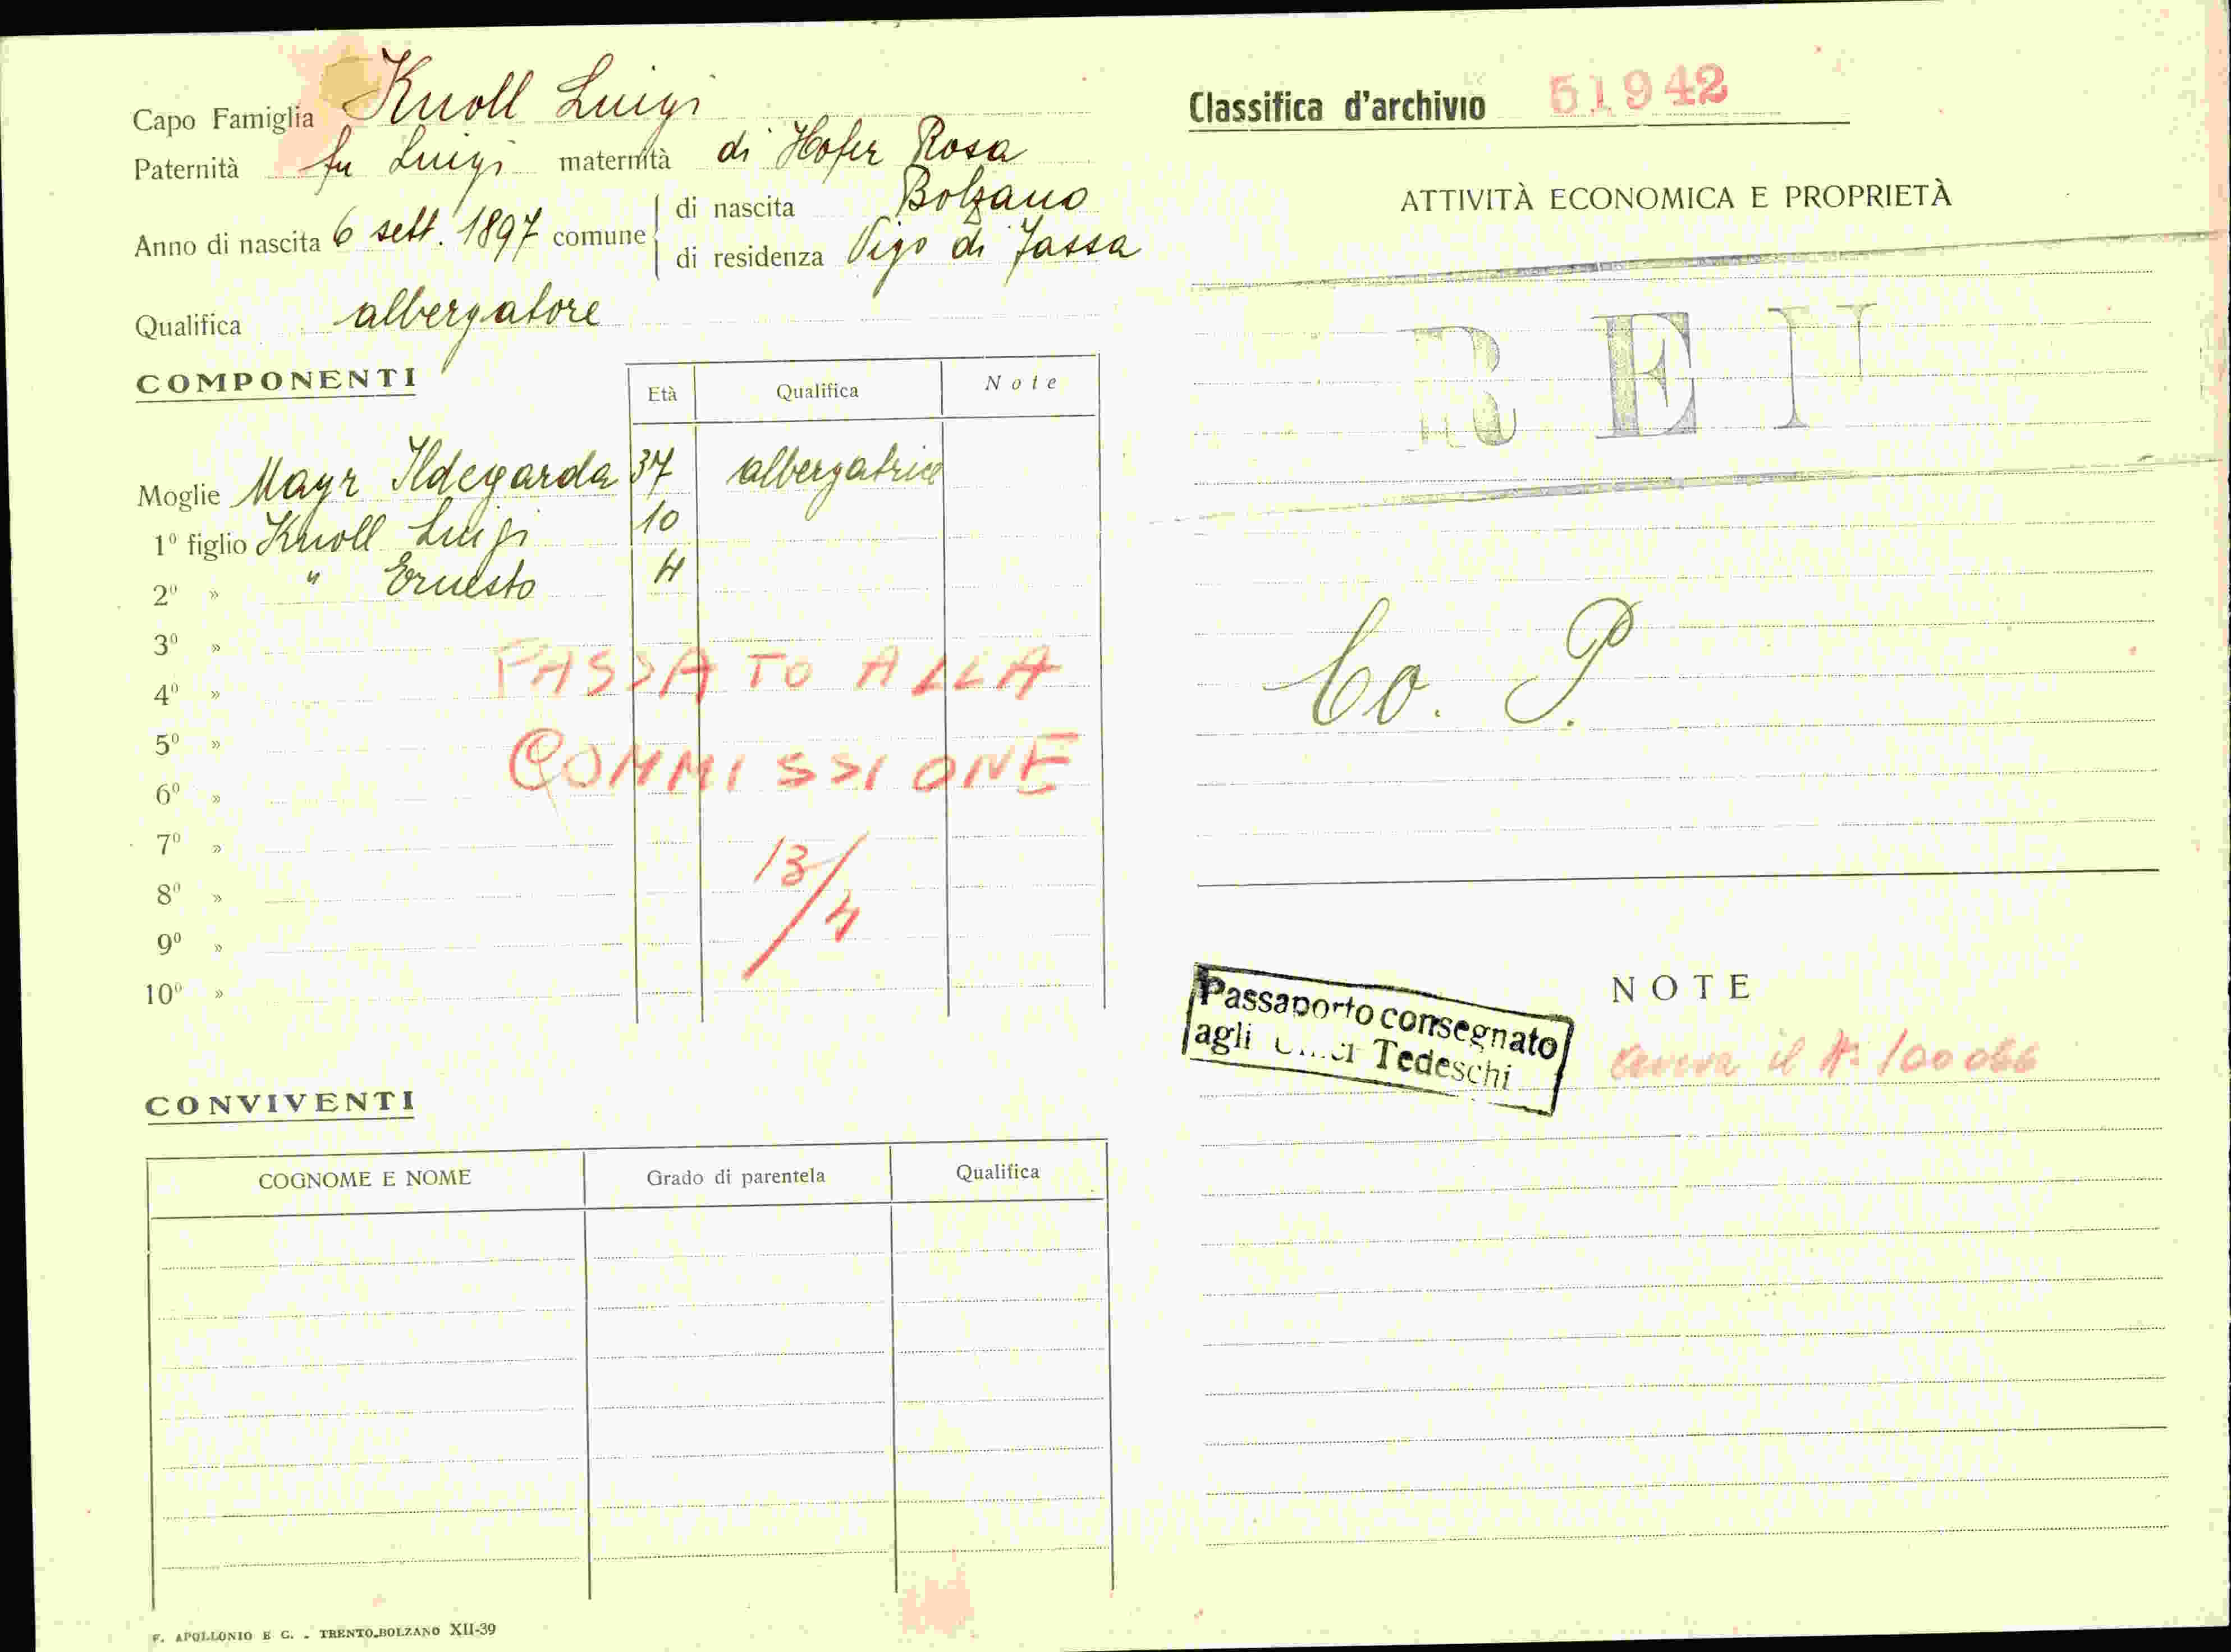 Capo Famiglia Knoll Luigi
Paternità fu Luigi maternità di Hofer Rosa
Anno di nascita 6 sett. 1897 comune di nascita Bolzano
di residenza Vigo di Fassa
Qualifica albergatore
COMPONENTI
Età Qualifica Note
Moglie Mayr Ildegarda 37 albergatrice
1º figlio Knoll Luigi 10
2º » " Ernesto 4
3º »
4º »
5º »
6º »
7º »
8º »
9º »
10º »
PASSATO ALLA
COMMISSIONE
13/4
CONVIVENTI
COGNOME E NOME Grado di parentela Qualifica
F. APOLLONIO E C. - TRENTO-BOLZANO XII-39
Classifica d'archivio 51942
ATTIVITÀ ECONOMICA E PROPRIETÀ
Co. P.
NOTE
Passaporto consegnato
agli Tedeschi
il Nº 100086